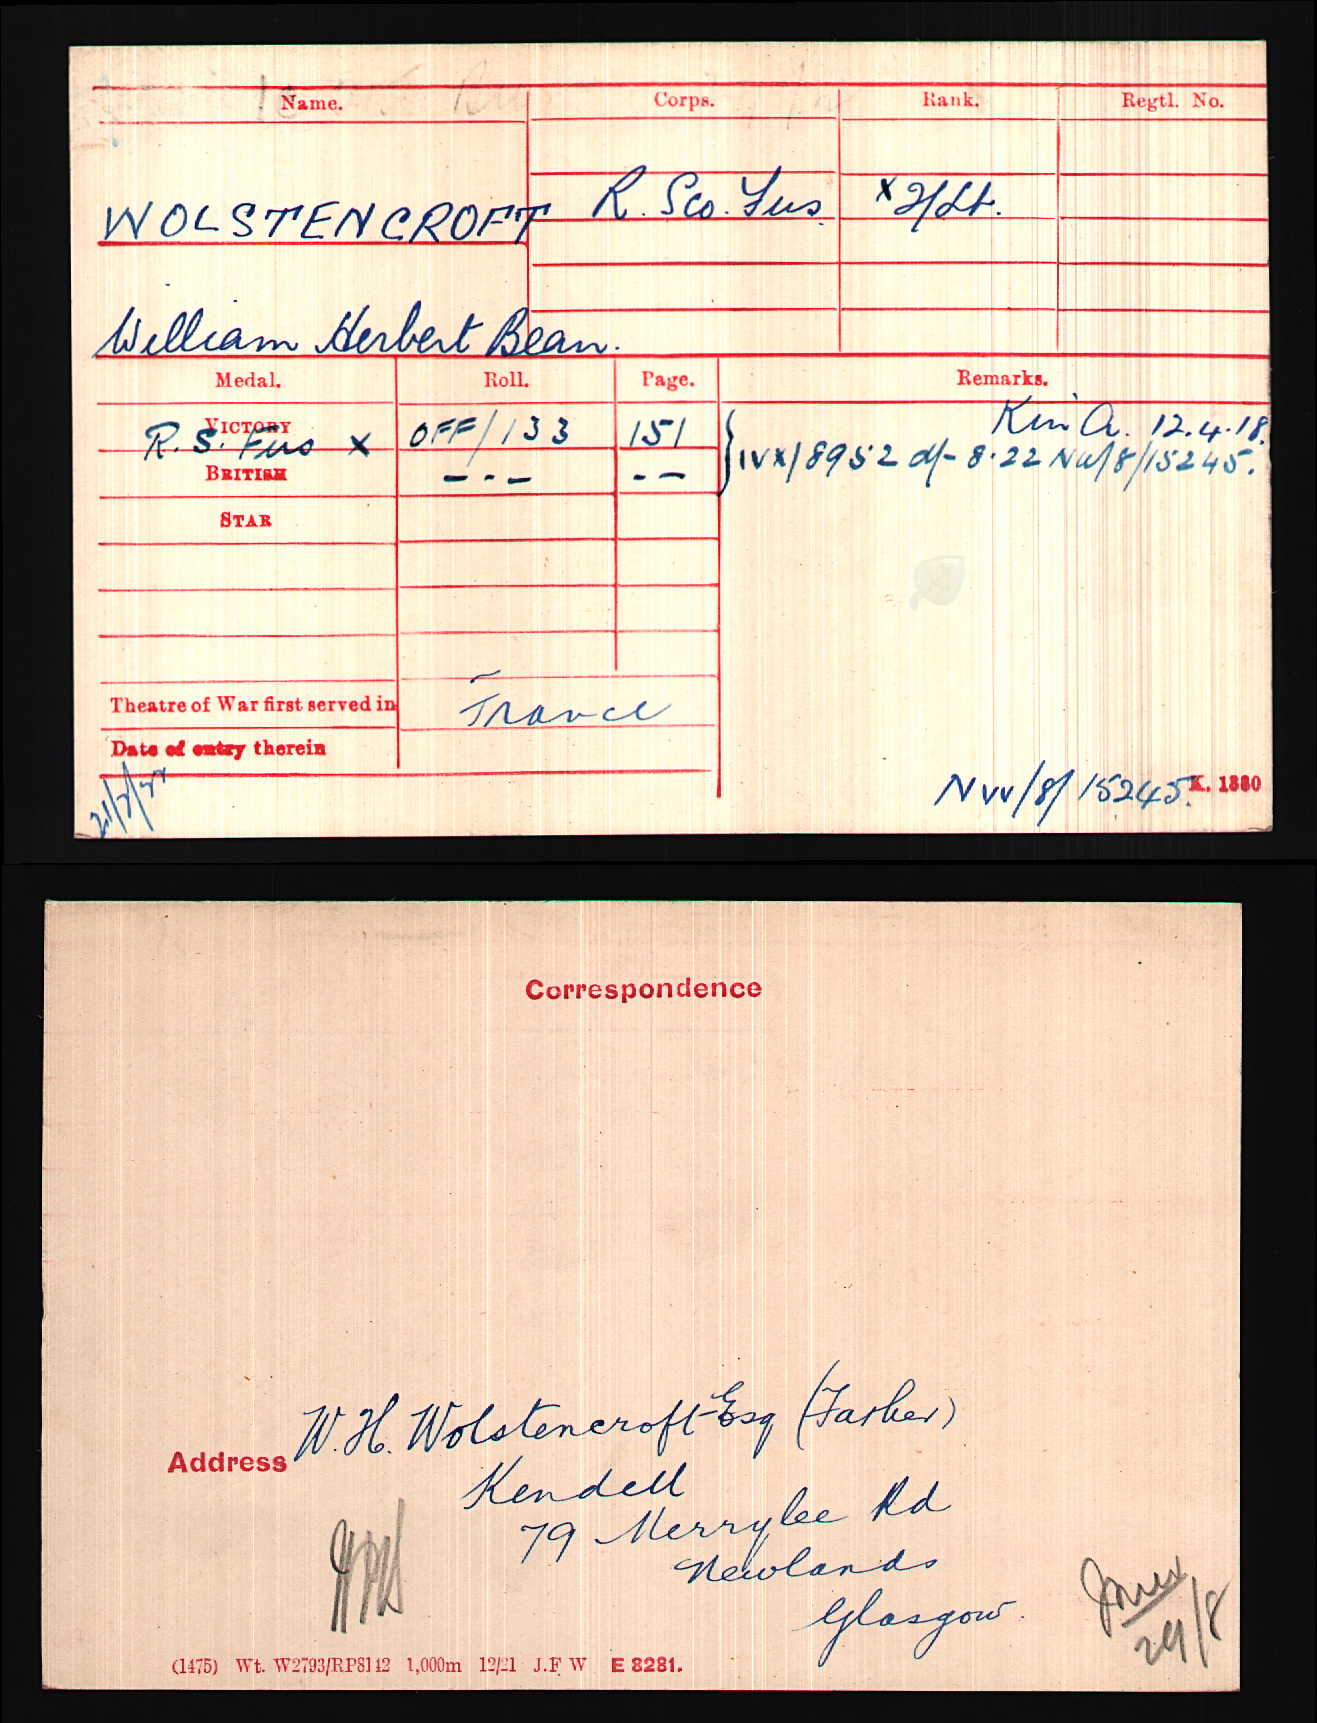 Name. Corps. Rank. Regtl. No.
WOLSTENCROFT R. Sco. Fus x 2/Lt.
William Herbert Bean.
Medal. Roll. Page. Remarks.
Kin A. 12.4.18.
VICTORY
R. S. Fus x OFF/133 151
BRITISH — - — - — IVX/8952 d/- 8.22 NW/8/15245.
STAR
Theatre of War first served in France
Date of entry therein
NW/8/15245. K. 1380
Correspondence
W. H. Wolstencroft Esq (Father)
Address
Kendell
79 Merrylee Rd
Newlands
Glasgow.
29/8
(1475) Wt. W2793/RP8142 1,000m 12/21 J.F.W E 8281.